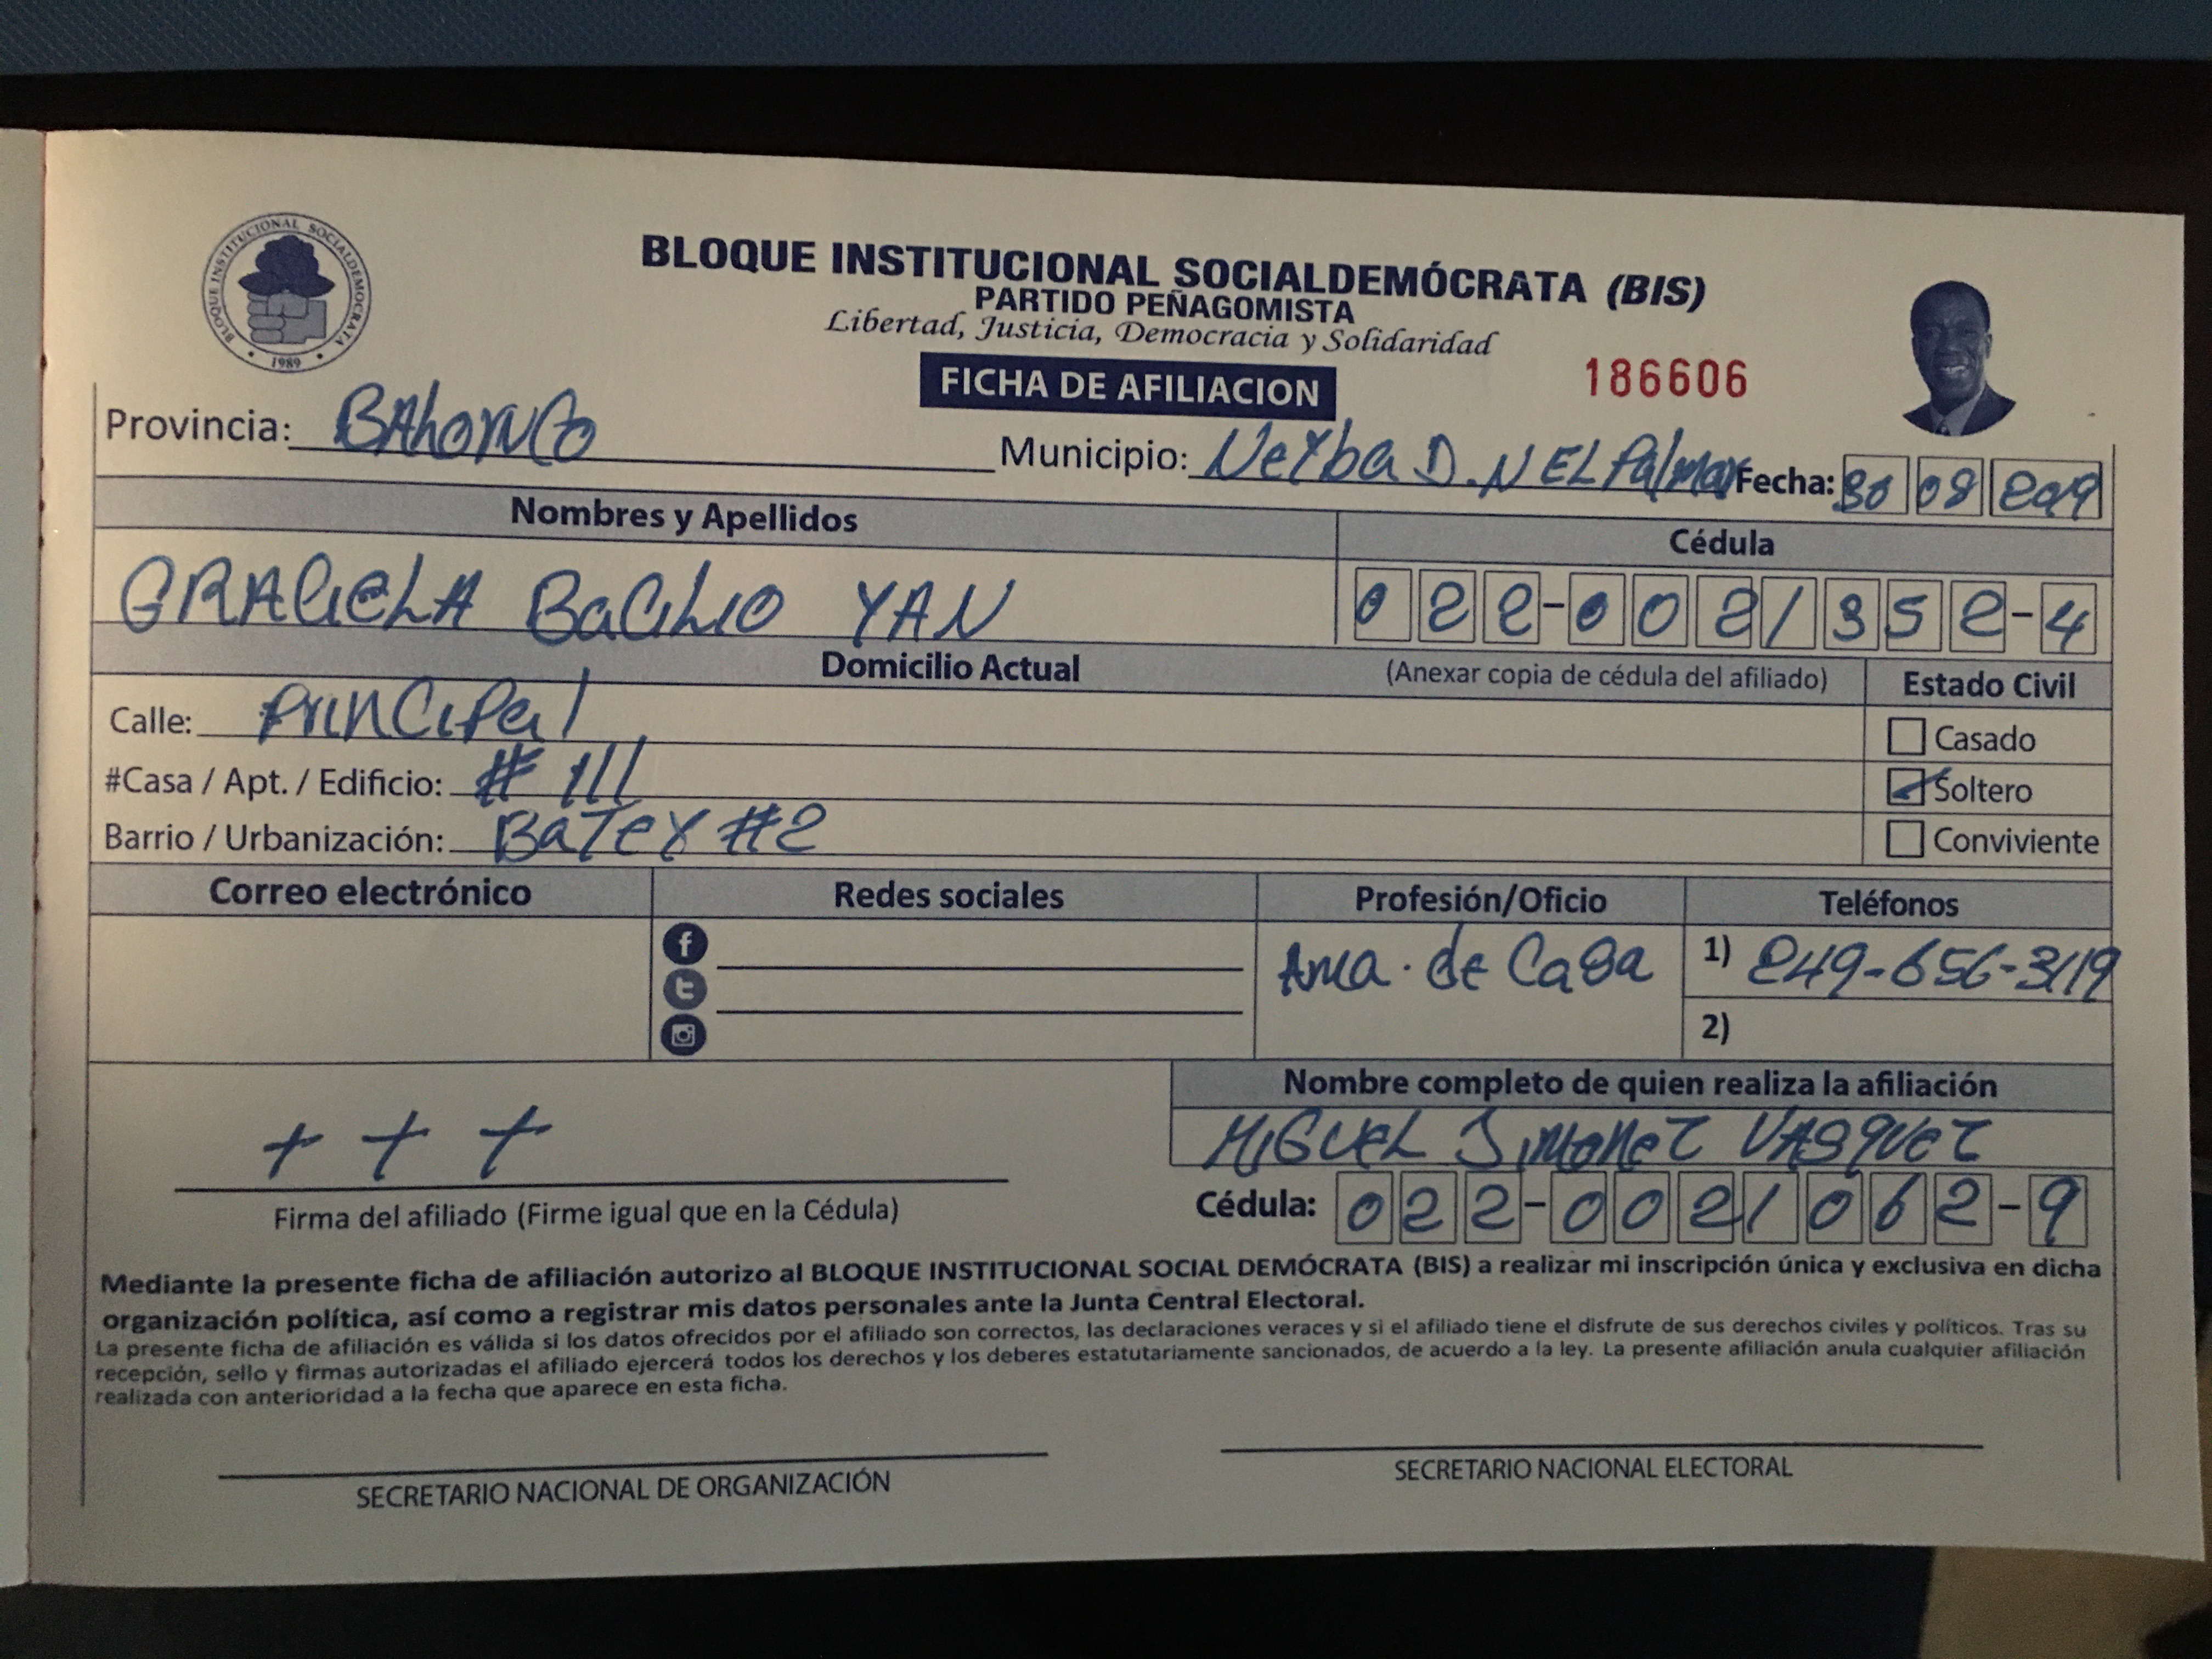 BLOQUE INSTITUCIONAL SOCIALDEMOCRATA
1989
BLOQUE INSTITUCIONAL SOCIALDEMÓCRATA (BIS)
PARTIDO PEÑAGOMISTA
Libertad, Justicia, Democracia y Solidaridad
FICHA DE AFILIACION
186606
Provincia: BAhoruco Municipio: Neyba D.N EL Palmar Fecha: 30 08 2019
Nombres y Apellidos Cédula
GRACIELA BaCiLIO YAN 022-0021352-4
Domicilio Actual (Anexar copia de cédula del afiliado) Estado Civil
Calle: Principal Casado
#Casa / Apt. / Edificio: # 111 Soltero
Barrio / Urbanización: BaTeY #2 Conviviente
Correo electrónico Redes sociales Profesión/Oficio Teléfonos
Ama de Casa 1) 849-656-3119
2)
Nombre completo de quien realiza la afiliación
+ + + MIGUEL JIMENEZ VASQUEZ
Firma del afiliado (Firme igual que en la Cédula) Cédula: 022-0021062-9
Mediante la presente ficha de afiliación autorizo al BLOQUE INSTITUCIONAL SOCIAL DEMÓCRATA (BIS) a realizar mi inscripción única y exclusiva en dicha
organización política, así como a registrar mis datos personales ante la Junta Central Electoral.
La presente ficha de afiliación es válida si los datos ofrecidos por el afiliado son correctos, las declaraciones veraces y si el afiliado tiene el disfrute de sus derechos civiles y políticos. Tras su
recepción, sello y firmas autorizadas el afiliado ejercerá todos los derechos y los deberes estatutariamente sancionados, de acuerdo a la ley. La presente afiliación anula cualquier afiliación
realizada con anterioridad a la fecha que aparece en esta ficha.
SECRETARIO NACIONAL DE ORGANIZACIÓN SECRETARIO NACIONAL ELECTORAL